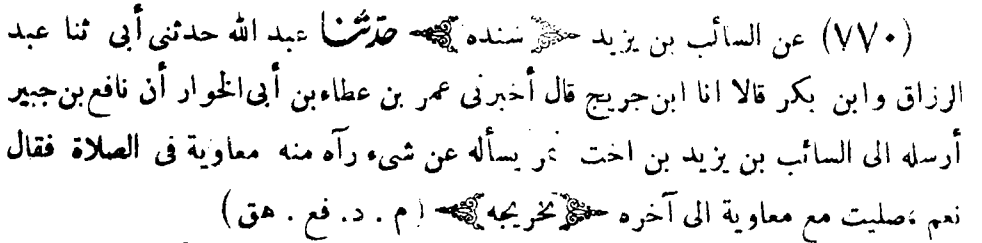 (٧٧٠) عن السائب بن يزيد سنده حدثنا عبد الله حدثنى أبى ثنا عبد
الرزاق وابن بكر قالا انا ابن جريج قال أخبرنى عمر بن عطاء بن أبى الخوار أن نافع بن جبير
أرسله الى السائب بن يزيد بن اخت نمر يسأله عن شىء رآه منه معاوية فى الصلاة فقال
نعم صليت مع معاوية الى آخره تخريجه (م . د. فع . هق)